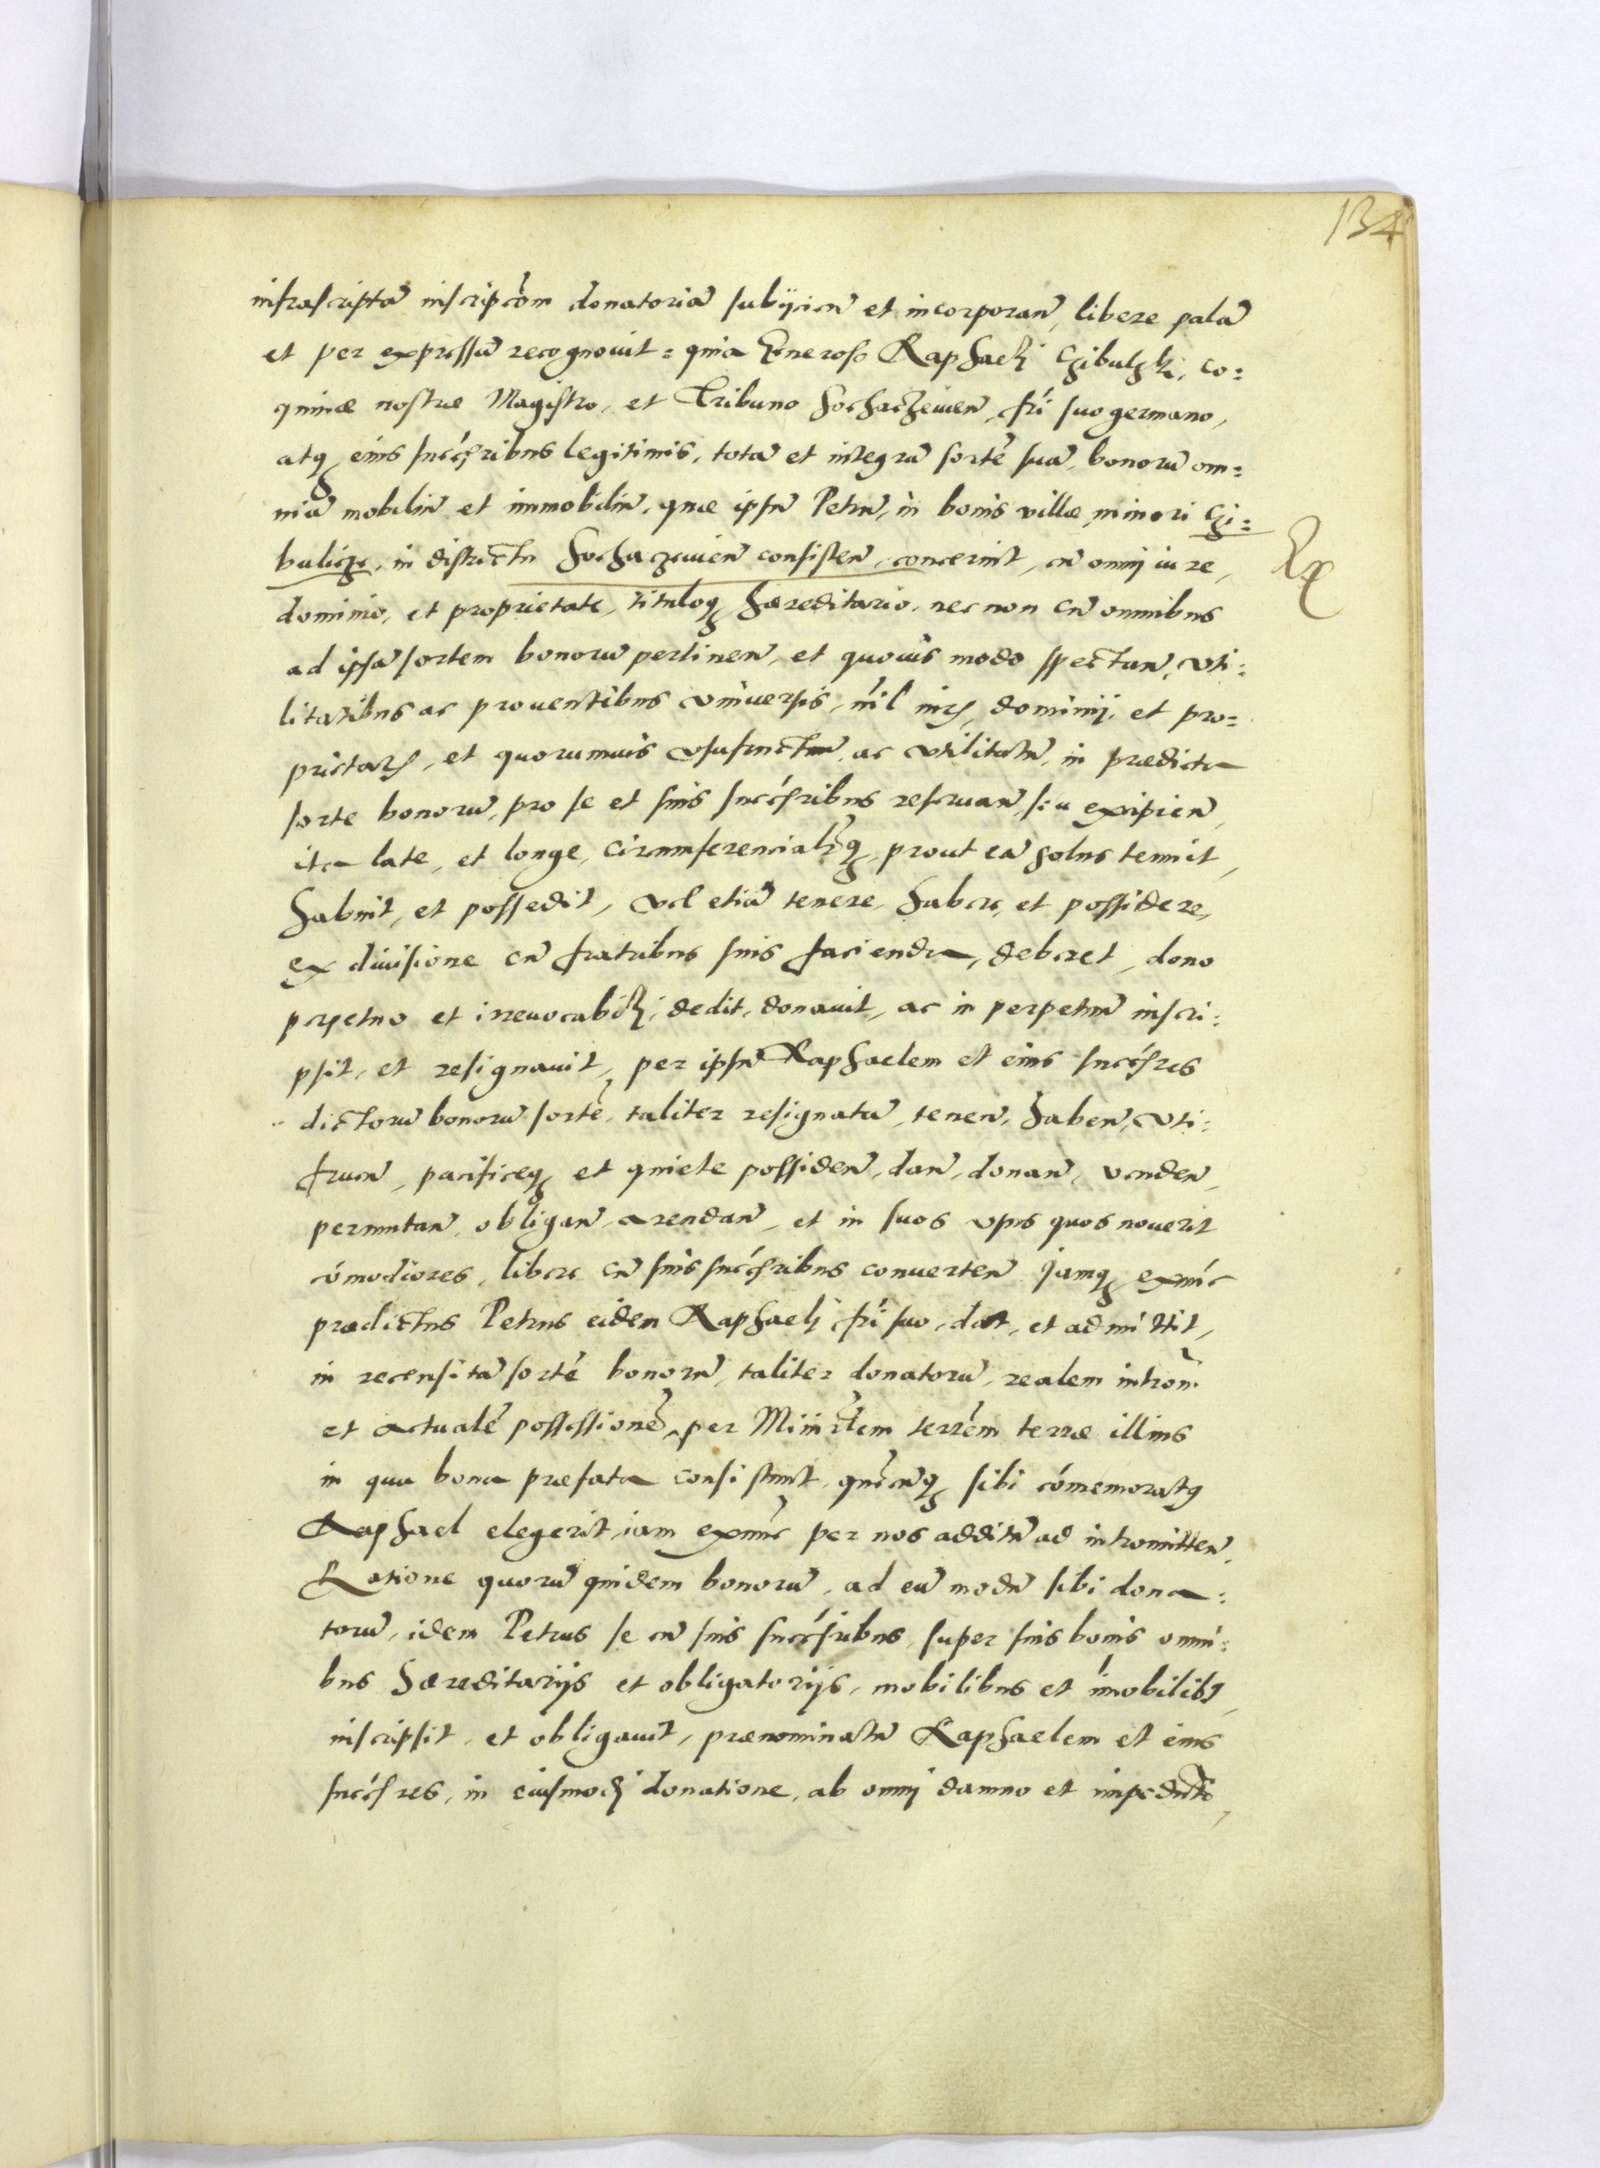 134
infrascriptā inscripc̄om donatoriā subijcien̄ et incorporan̄, libere palā
et per expressū recognouit = quia Generoso Raphaeli Czibulski, co=
quinæ nostræ Magistro, et Tribuno Sochaczeuien̄, fr̄i suo germano,
atq₃ eius succ̄ribus legitimis, totā et integrā sortē suā, bonorū om=
niū mobiliū et immobiliū, quæ ipsū Petrū, in bonis villæ minori Czi=
buliczе, in districtu Sochaczeuien̄ consisten̄, concernit, cū omni iure,
dominio, et proprietate, tituloq₃ hæreditario, nec non cū omnibus
ad ipsā sortem bonorū pertinen̄, et quouis modo spectan̄, vti=
litatibus ac prouentibus vniuersis, nil iurs, dominij, et pro=
prietats, et quorumuis vsufructuū, ac vtilitatū, in prædicta
sorte bonorū, pro se et suis succ̄ribus reseruan̄ seu excipien̄,
ita late, et longe, circumferencialr̄q₃, prout eā solus tenuit,
habuit, et possedit, vel etiā tenere, habere, et possidere,
ex diuisione cū fratribus suis facienda, deberet, dono
perpetuo et irreuocabili, dedit, donauit, ac in perpetuū inscri=
psit, et resignauit, per ipsū Raphaelem et eius succ̄res
dictorū bonorū sortē, taliter resignatā, tenen̄, haben̄, vti=
fruen̄, pacificeq₃ et quiete possiden̄, dan̄, donan̄, venden̄,
permutan̄, obligan̄, arendan̄, et in suos vsus quos nouerit
cōmodiores, libere cū suis succ̄ribus conuerten̄ Jamq₃ exnūc
prædictus Petrus eidem Raphaeli fr̄i suo, dat, et admittit,
in recensitā sortē bonorū, taliter donatorū, realem introm̄
et actualē possessionē, per Minr̄lem terrēm terræ illius
in qua bona præfata consistunt, quēcunq₃ sibi cōmemoratus
Raphael elegerit, iam exnūc per nos additū ad intromitten̄,
Ratione quorū quidem bonorū, ad eū modū sibi dona=
torū, idem Petrus se cū suis succ̄ribus, super suis bonis omni=
bus hæreditarijs et obligatorijs, mobilibus et īmobilibs,
inscripsit, et obligauit, prænominatū Raphaelem et eius
succ̄res, in eiusmodi donatione, ab omni damno et impedmto,